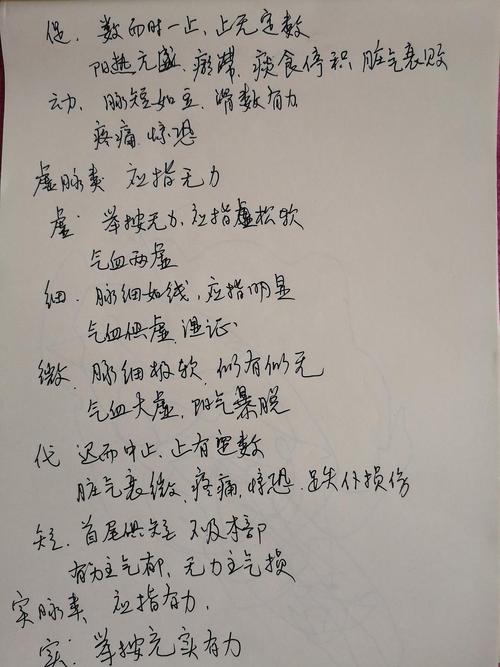 促. 数而时一止, 止无定数
阳热亢盛, 瘀滞, 痰食停积, 脏气衰败
动. 脉短如豆. 滑数有力
疼痛 惊恐
虚脉类 应指无力
虚: 举按无力, 应指虚松软
气血两虚
细. 脉细如线, 应指明显
气血俱虚, 湿证
微. 脉细极软 似有似无
气血大虚, 阳气暴脱
代 迟而中止, 止有定数
脏气衰微, 疼痛, 惊恐. 跌失仆损伤
短. 首尾俱短 不及本部
有力主气郁, 无力主气损
实脉类 应指有力.
实: 举按充实有力